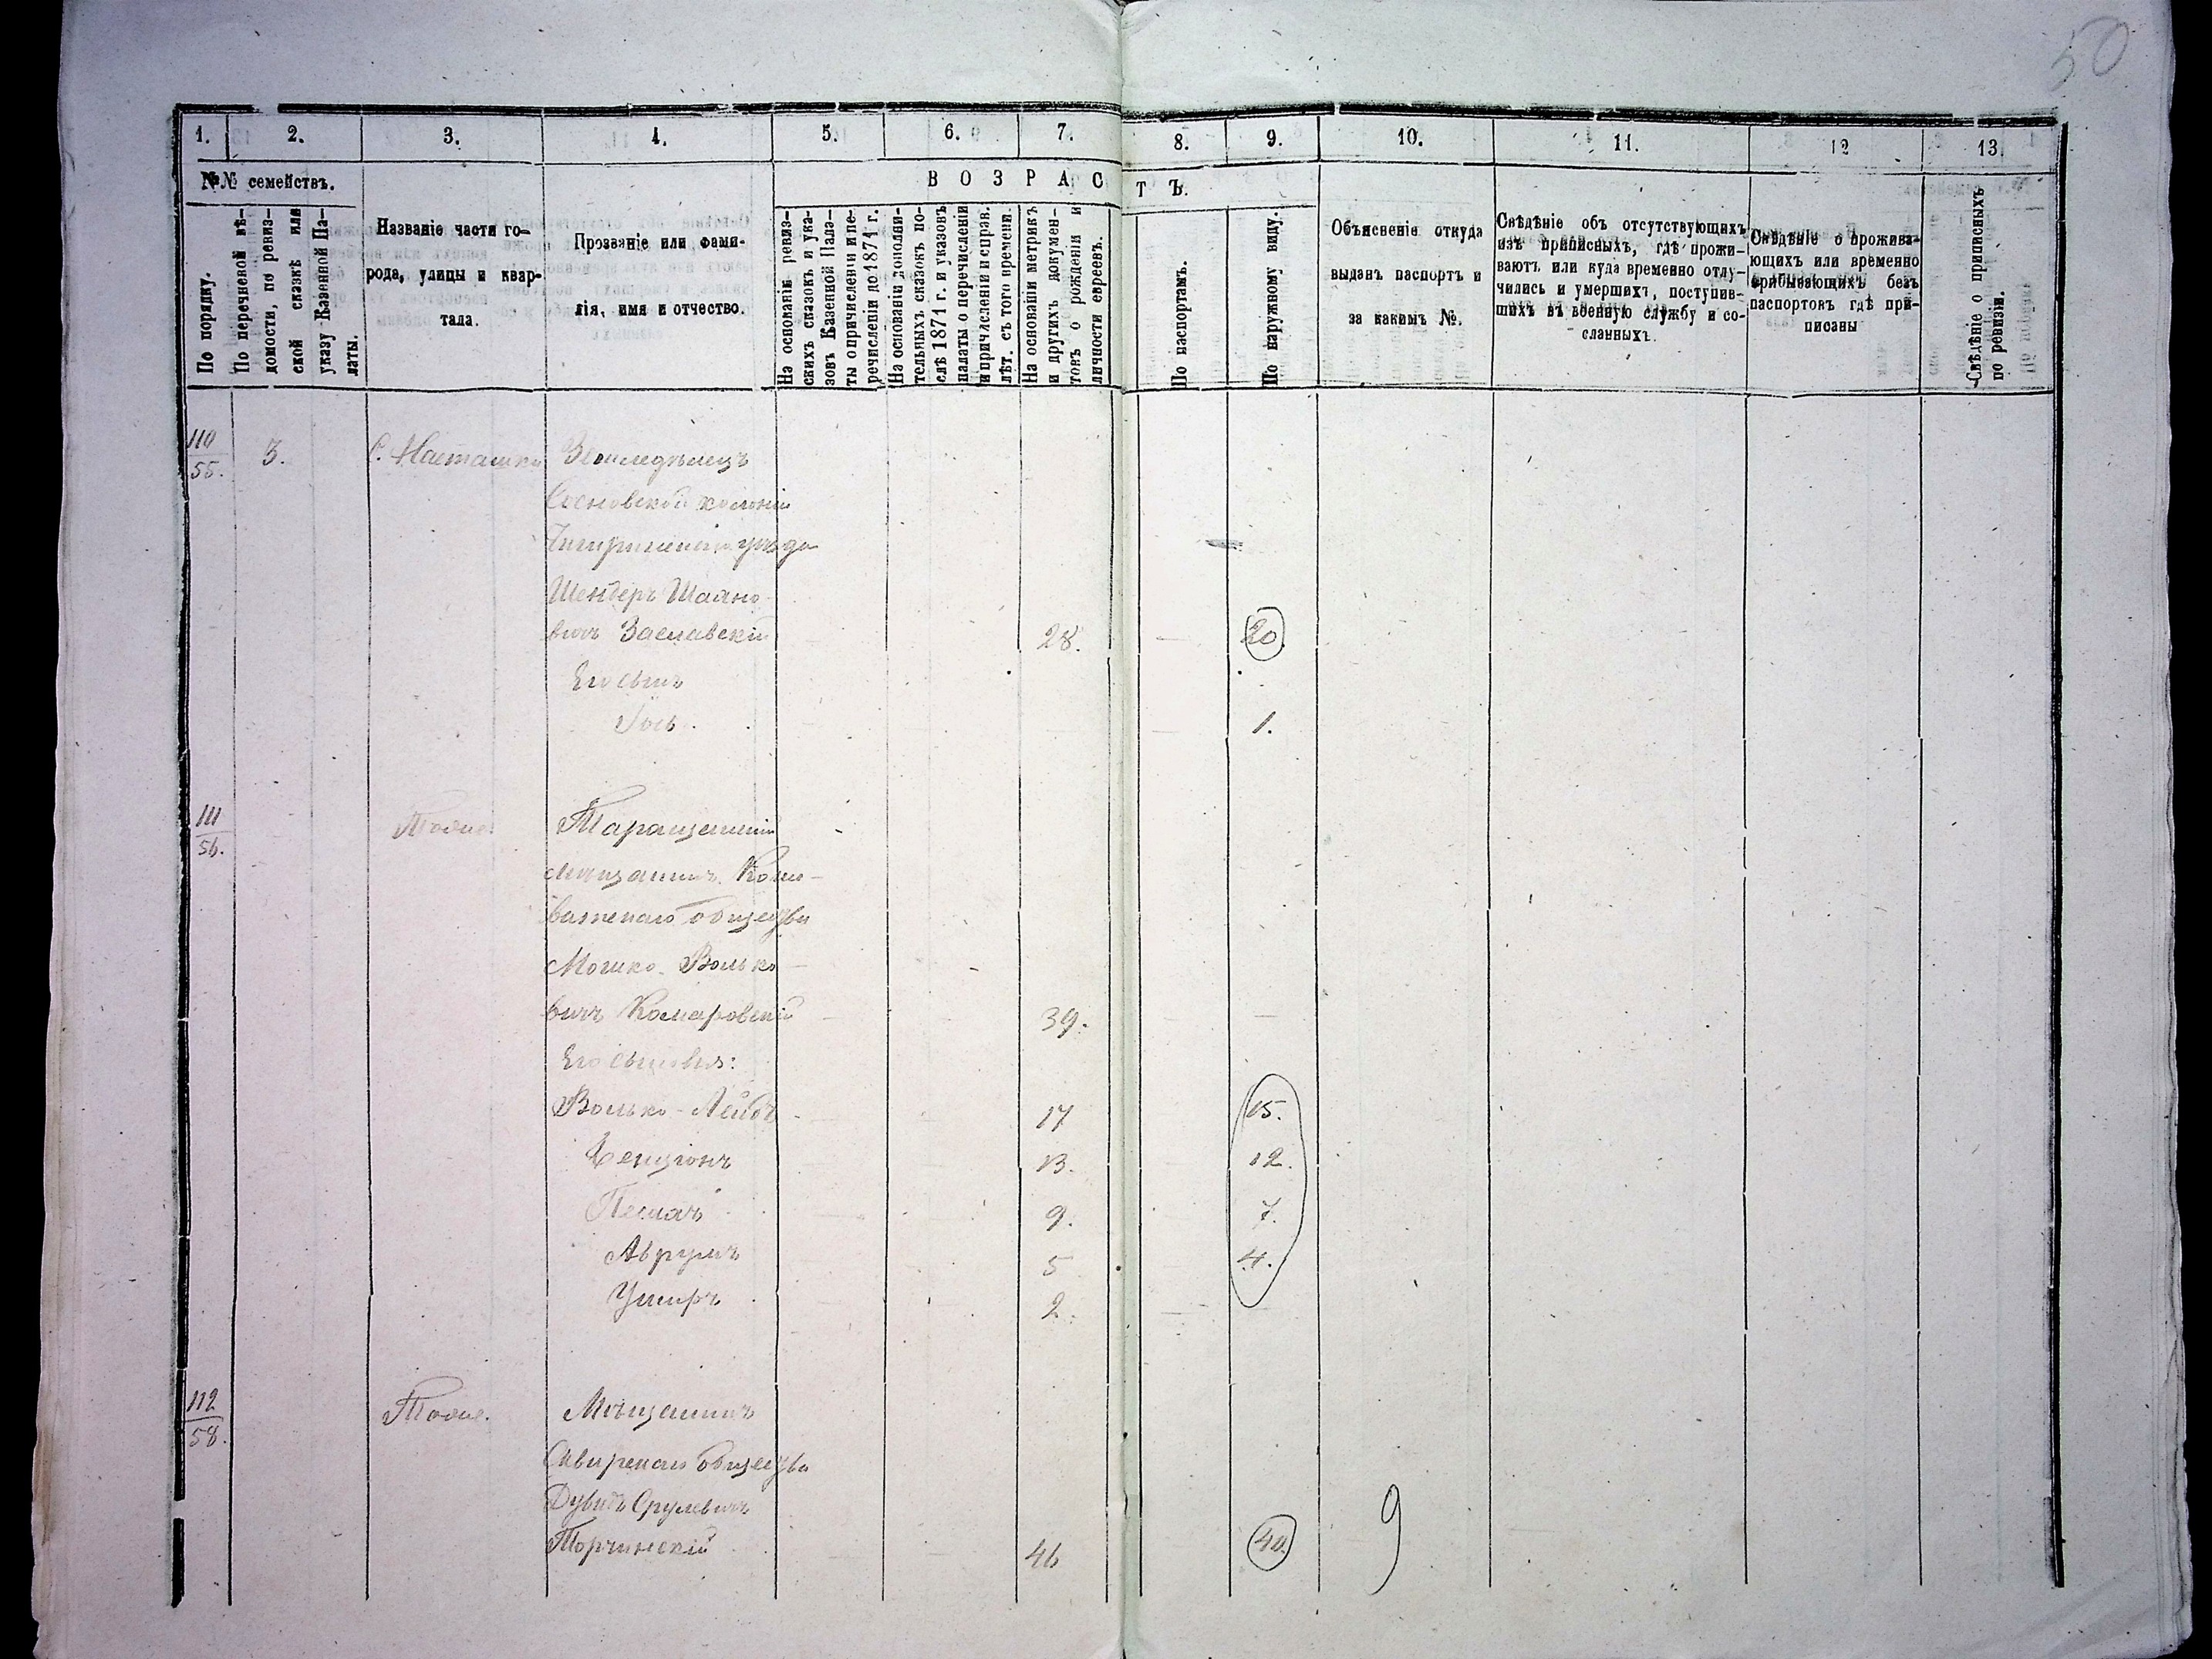 50
1. 2. 3. 4. 5. 6. 7. 8. 9. 10. 11. 12 13.
№№ семействъ.
ВОЗРАСТЪ.
По порядку.
По перечневой вѣ-
домости, по ревиз-
ской сказкѣ или
указу Казенной Па-
латы.
Названіе части го-
рода, улицы и квар-
тала.
Прозваніе или фами-
лія, имя и отчество.
На основаніи ревиз-
скихъ сказокъ и ука-
зовъ Казенной Пала-
ты о причисленіи и пе-
речисленіи до 1871 г.
На основаніи дополни-
тельныхъ сказокъ по-
слѣ 1871 г. и указовъ
палаты о перечисленіи
и причисленіи и исправ.
лѣт. съ того времени.
На основаніи метрикъ
и другихъ докумен-
товъ о рожденіи и
личности евреевъ.
По паспортамъ.
По наружному виду.
Объясненіе откуда
выданъ паспортъ и
за какимъ №.
Свѣдѣніе объ отсутствующихъ
изъ приписныхъ, гдѣ прожи-
ваютъ или куда временно отлу-
чились и умершихъ, поступив-
шихъ въ военную службу и со-
сланныхъ.
Свѣдѣніе о прожива-
ющихъ или временно
прибывающихъ безъ
паспортовъ гдѣ при-
писаны
Свѣдѣніе о приписныхъ
по ревизіи.
110
55.
3. С. Насташка Земледѣлецъ
Сосновской колоніи
Чигиринскаго уѣзда
Шендеръ Шаяно-
вичъ Заславскій 28. 20.
Его сынъ
Іось. 1.
111
56.
Тоже. Таращанскій
мѣщанинъ
общества
МошкоВолько-
вичъ Комаровскій 39.
Его сыновья:
Волько-Лейбъ 17 15.
Бенціонъ 13. 12.
Песахъ 9. 7.
Аврумъ 5 4.
Ушеръ 2.
112
58.
Тоже. Мѣщанинъ
Сквирскаго общества
Дувидъ Срулевичъ
Торчинскій 46 40.
9